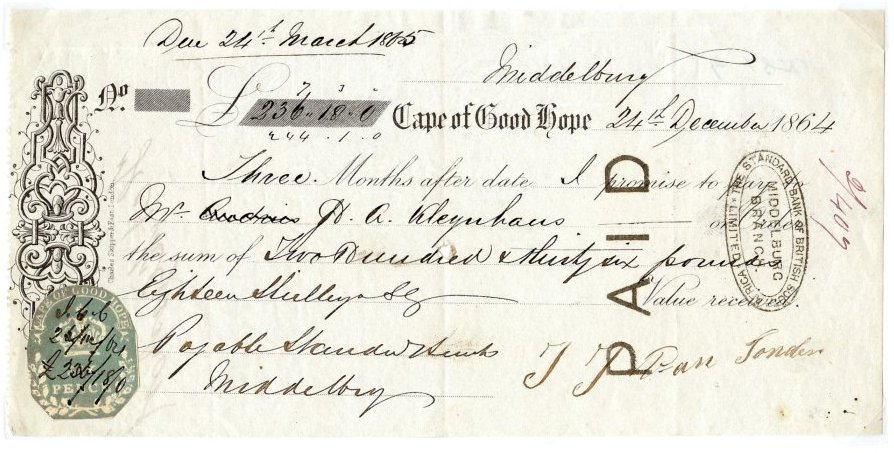 Due 24th March 1865
Middelburg
No
7 3
£ 236.. 18. 0 Cape of Good Hope 24th December 1864
244 . 1 . 0
Three Months after date I promise to pay to
Mr. H. A. Kleynhans or order
the sum of Two Hundred & thirty six pounds
Eighteen Shillings Stg Value received.
Payable Standard Bank
Middelburg
J J van Tonder
PAID
THE STANDARD BANK OF BRITISH SOUTH AFRICA LIMITED
MIDDELBURG
BRANCH
CAPE OF GOOD HOPE
PENCE
£236/18/0